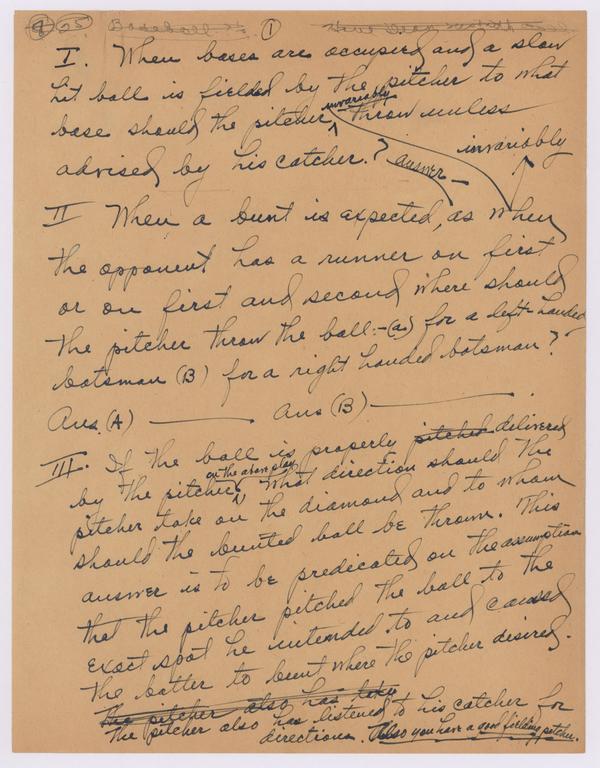 9 25 Baseball ①
I. When bases are occupied and a slow
hit ball is fielded by the pitcher to what
invariably
base should the pitcher ^ throw unless
invariably
advised by his catcher.? answer —
II When a bunt is expected, as when
the opponent has a runner on first
or on first and second where should
the pitcher throw the ball:-(a) for a left handed
batsman (B) for a right handed batsman?
Ans. (A) ——— Ans (B) ———
III. If the ball is properly pitched delivered
on the above play
by the pitcher ^ what direction should the
pitcher take on the diamond and to whom
should the bunted ball be thrown. This
answer is to be predicated on the assumption
that the pitcher pitched the ball to the
exact spot he intended to and caused
the batter to bunt where the pitcher desired.
the pitcher also has
the pitcher also has listened to his catcher for
directions. Also you have a good fielding pitcher.